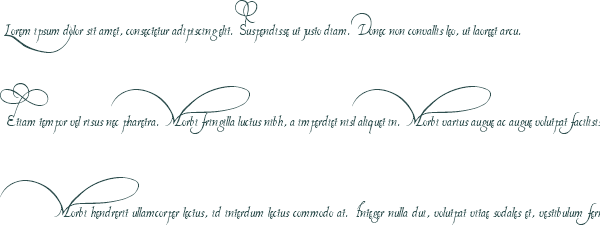 Lorem ipsum dolor sit amet, consectetur adipiscing elit. Suspendisse ut justo diam. Donec non convallis leo, ut laoreet arcu.
Etiam tempor vel risus nec pharetra. Morbi fringilla luctus nibh, a imperdiet nisl aliquet in. Morbi varius augue ac augue volutpat facilisis
Morbi hendrerit ullamcorper lectus, id interdum lectus commodo at. Integer nulla dui, volutpat vitae sodales et, vestibulum